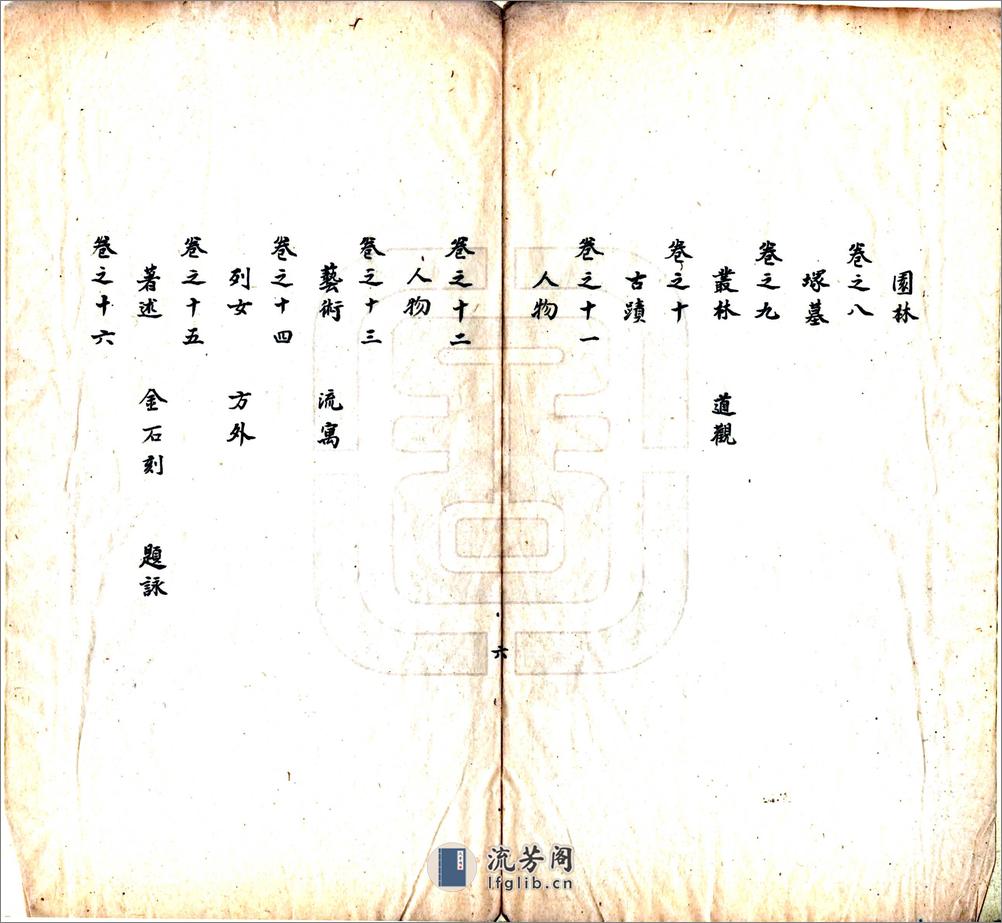 園林
卷之八
塚墓
卷之九
叢林 道觀
卷之十
古蹟
卷之十一
人物
六
卷之十二
人物
卷之十三
藝術 流寓
卷之十四
列女 方外
卷之十五
著述 金石刻 題詠
卷之十六
流芳阁
lfglib.cn